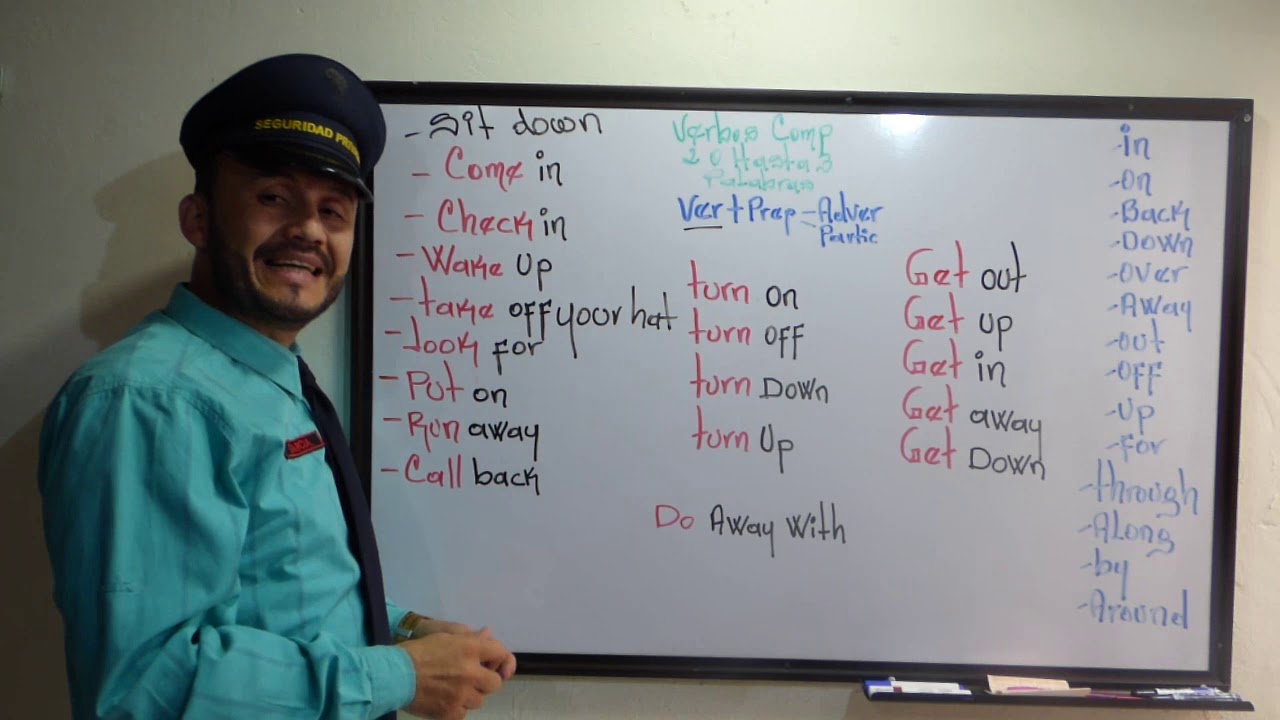 SEGURIDAD
- Sit down
- Come in
- Check in
- Wake Up
- take off your hat
- look for
- Put on
- Run away
- Call back
Verbos Comp
2 O Hasta 3
Palabras
Ver + Prep - Adver
Partic
turn on
turn off
turn Down
turn Up
Do Away With
Get out
Get up
Get in
Get away
Get Down
-in
-on
-Back
-Down
-over
-Away
-out
-OFF
-Up
-For
-through
-Along
-by
-Around